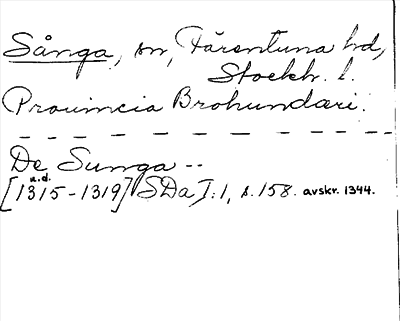 Sånga, sn, Färentuna hd,
Stockh. l.
Provincia Brohundæri.
De Sunga --
n.d.
[1315-1319] SDa I:1, s.158. avskr. 1344.